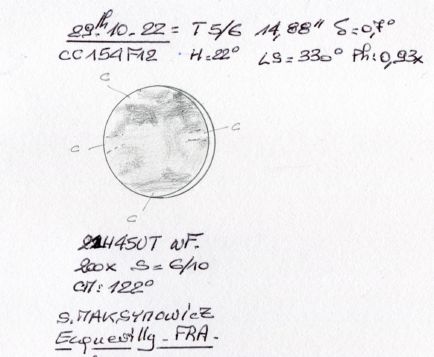 29th.10.22 = T 5/6 14,88" δ=0,7°
CC154F12 · H=22° LS=330° Ph:0,93x
C
C
C
C
21H45UT WF.
200x S=6/10
CM: 122°
S.MAKSYMOWICZ
Ecquevilly - FRA.